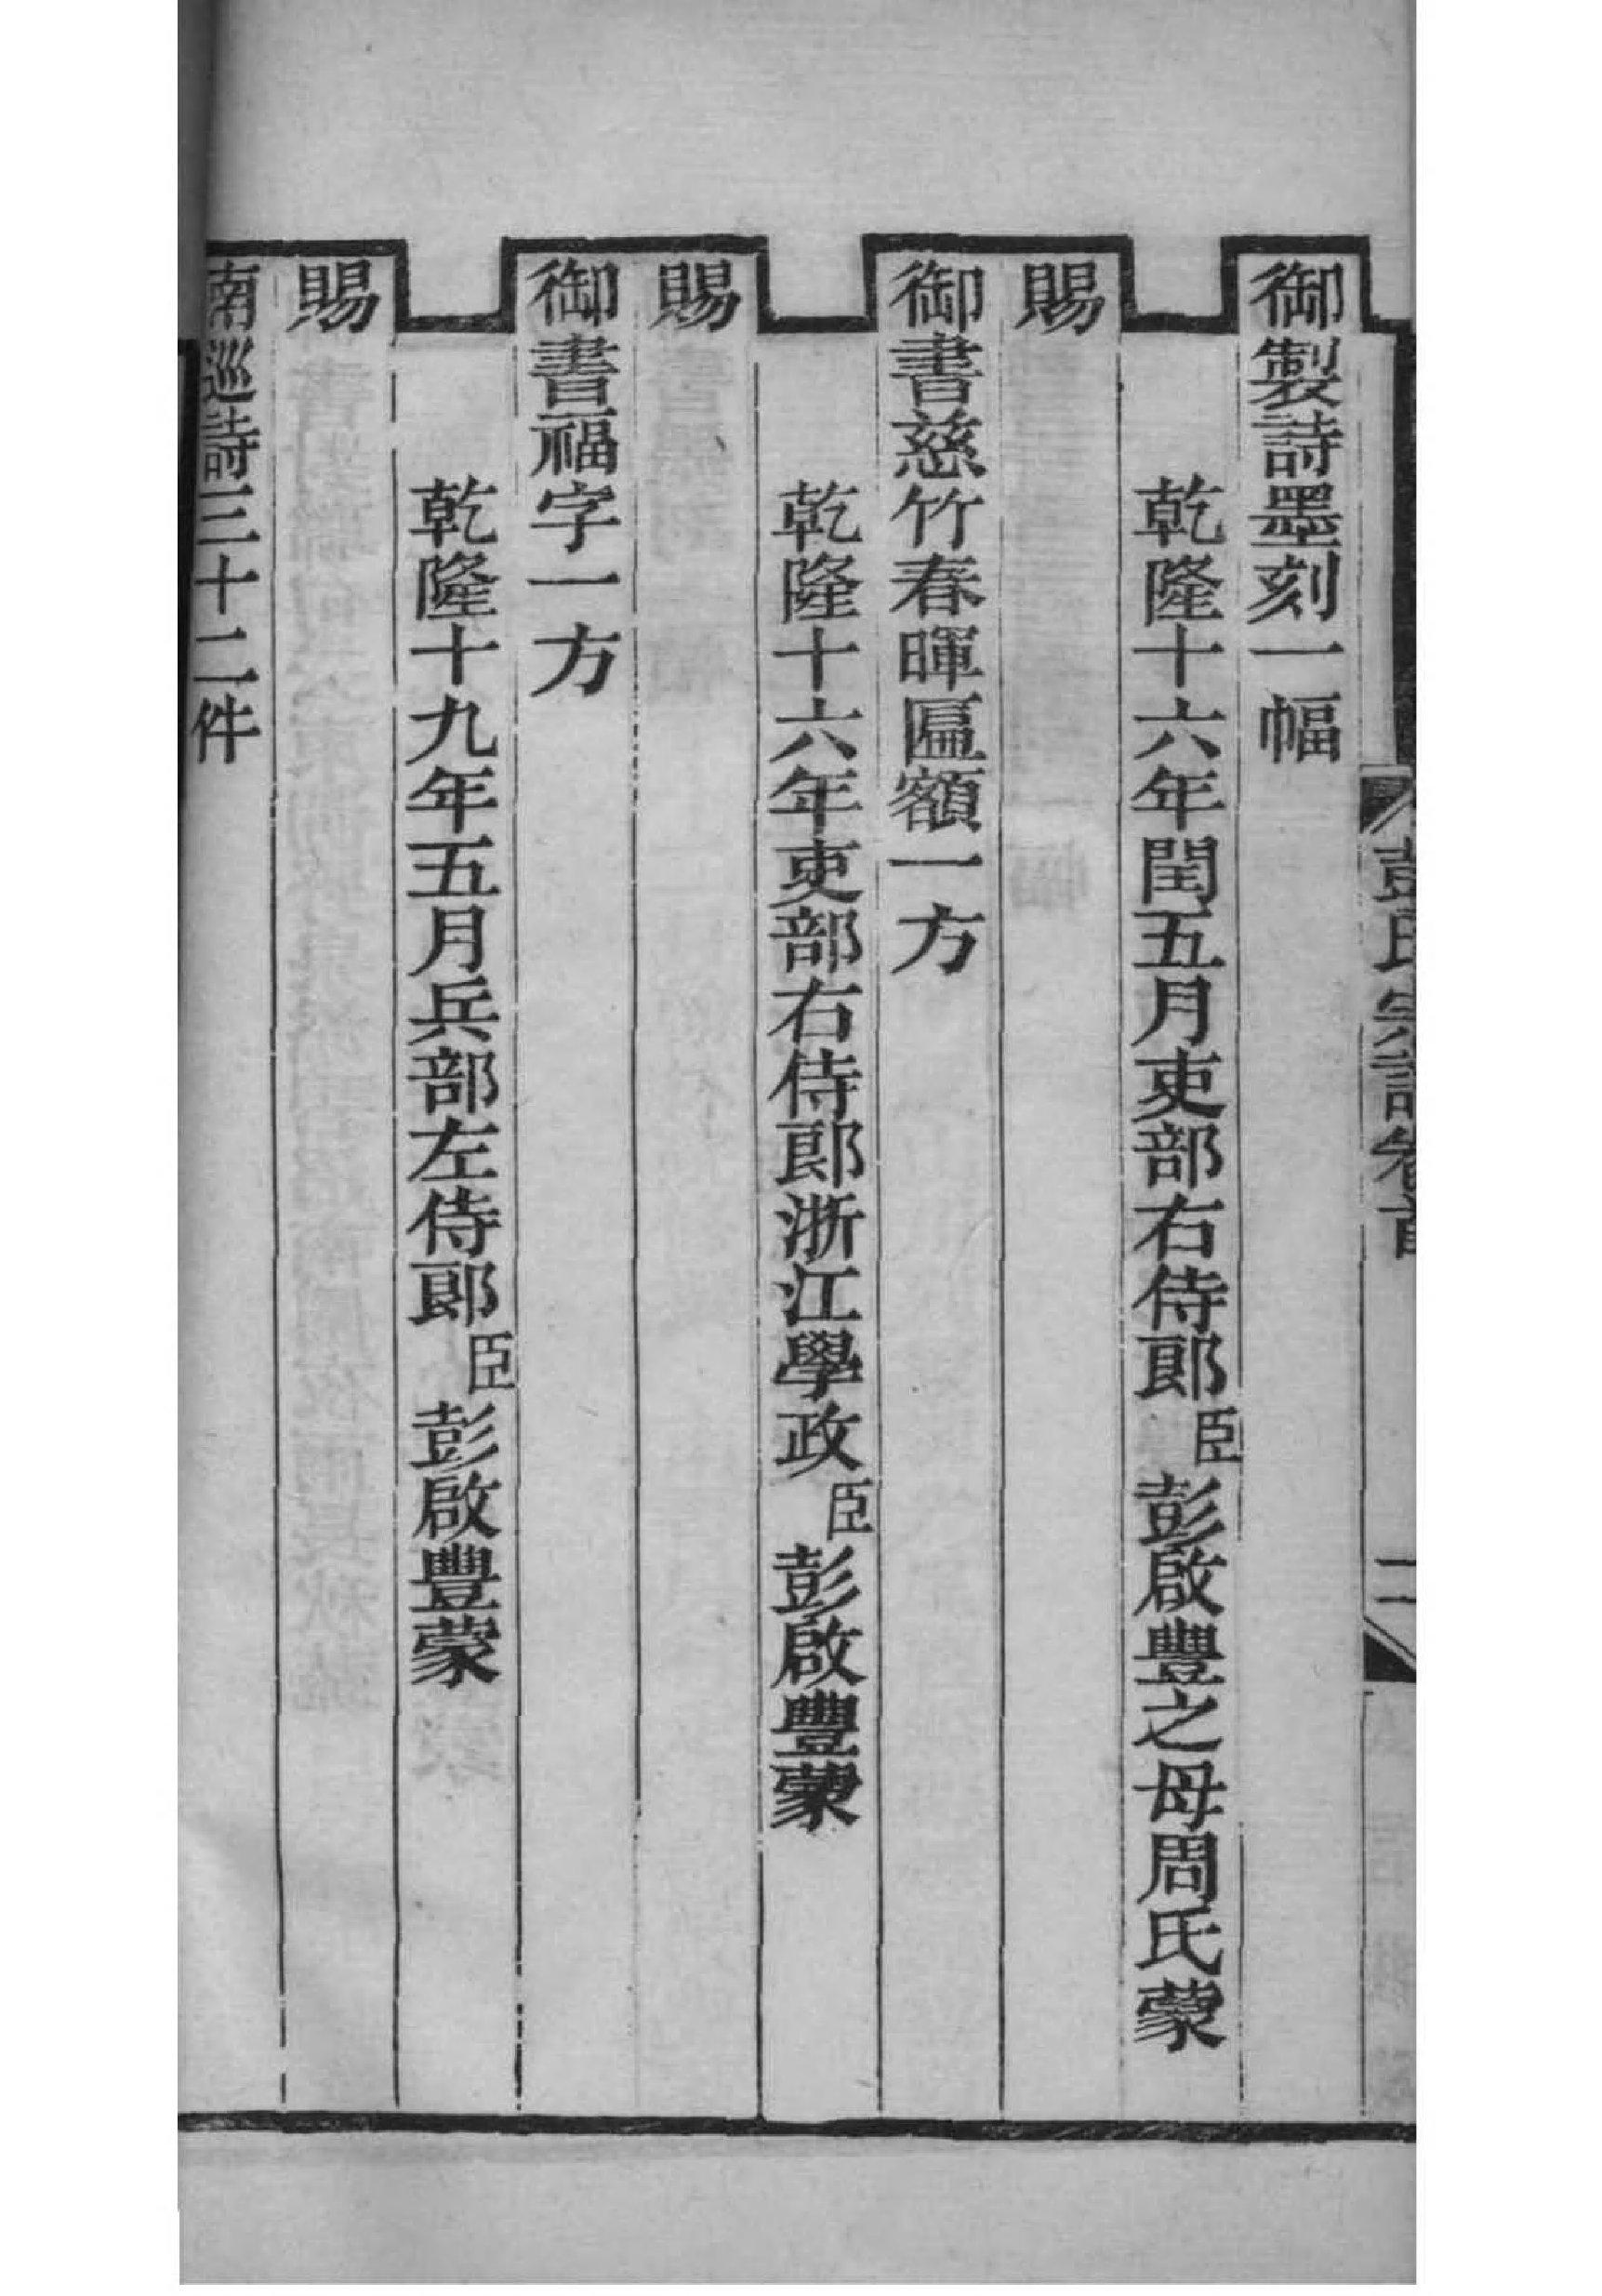 彭氏宗譜卷首
二
御製詩墨刻一幅
乾隆十六年閏五月吏部右侍郎臣彭啟豐之母周氏蒙
賜
御書慈竹春暉匾額一方
乾隆十六年吏部右侍郎浙江學政臣彭啟豐蒙
賜
御書福字一方
乾隆十九年五月兵部左侍郎臣彭啟豐蒙
賜
南巡詩三十二件